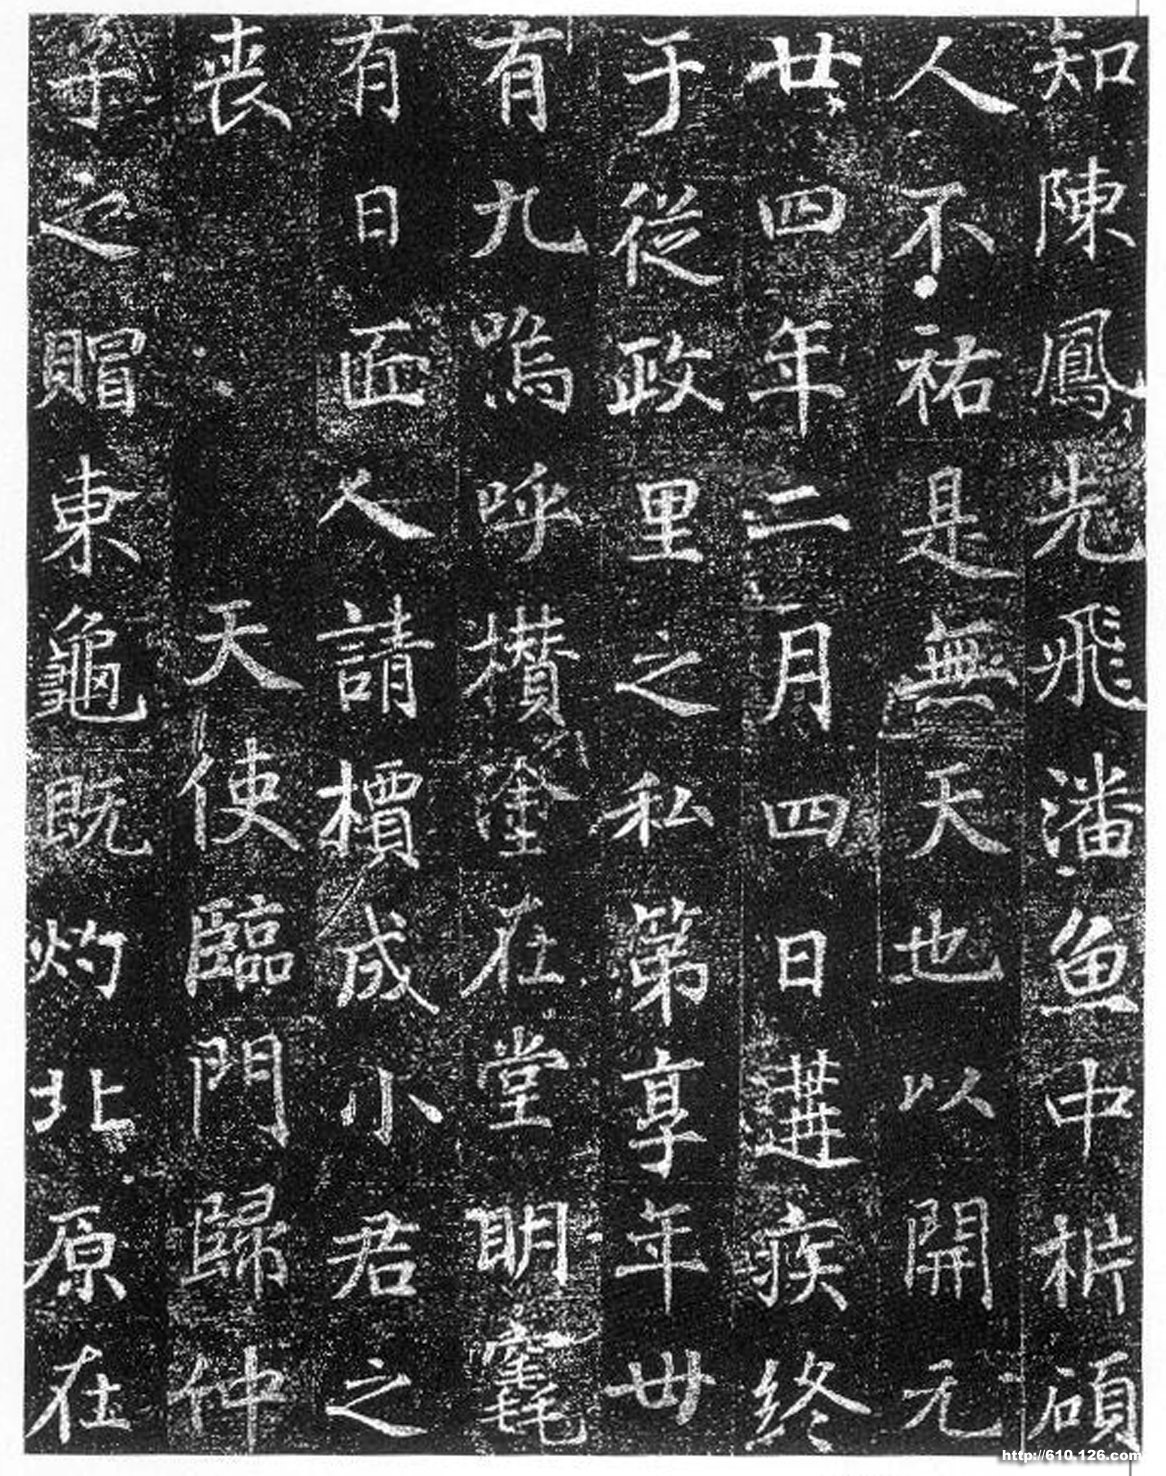 知陳鳳先飛潘魚中析碩
人不祐是無天也以開元
廿四年二月四日遘疾終
于從政里之私第享年卅
有九嗚呼攢塗在堂明毫
有日匠人請檟成小君之
喪 天使臨門歸仲
子之賵東龜既灼北原在
http://610.126.com